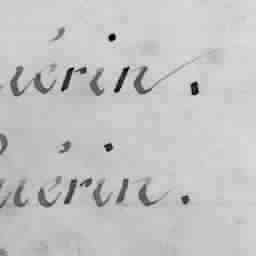 uérin.
uérin.